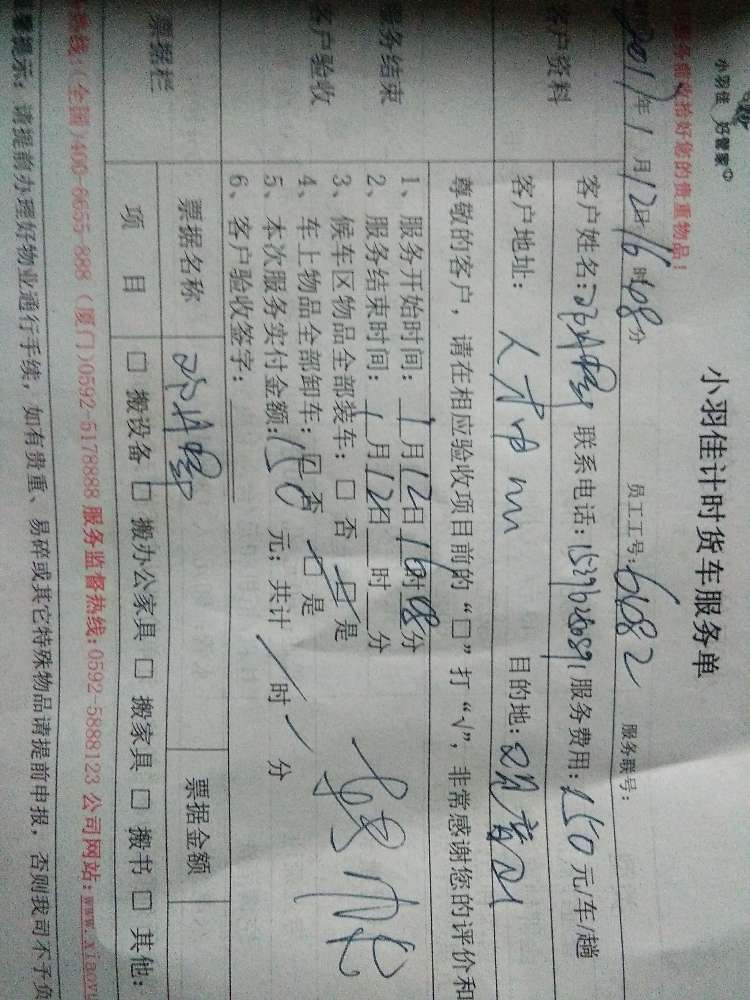 小羽佳 好管家
小羽佳计时货车服务单
服务前收拾好您的贵重物品！
2017年1月12日16时08分 员工工号：6682 服务联号：
客户资料
客户姓名： 联系电话： 服务费用：150元/车/趟
客户地址：人才中心 目的地：观音山
尊敬的客户，请在相应验收项目前的“□”打“√”，非常感谢您的评价和
服务结束
客户验收
1、服务开始时间：1月12日16时08分
2、服务结束时间：1月12日 时 分
3、候车区物品全部装车：□ 否 □ 是
4、车上物品全部卸车：□ 否 □ 是
5、本次服务实付金额：150 元；共计 / 时 / 分
6、客户验收签字：
票据栏
票据名称 票据金额
项 目 □ 搬设备 □ 搬办公家具 □ 搬家具 □ 搬书 □ 其他：
热线：(全国)400-6655-888 (厦门)0592-5178888 服务监督热线：0592-5888123 公司网站：www.xiaoyu
提示：请提前办理好物业通行手续，如有贵重、易碎或其它特殊物品请提前申报，否则我司不予负